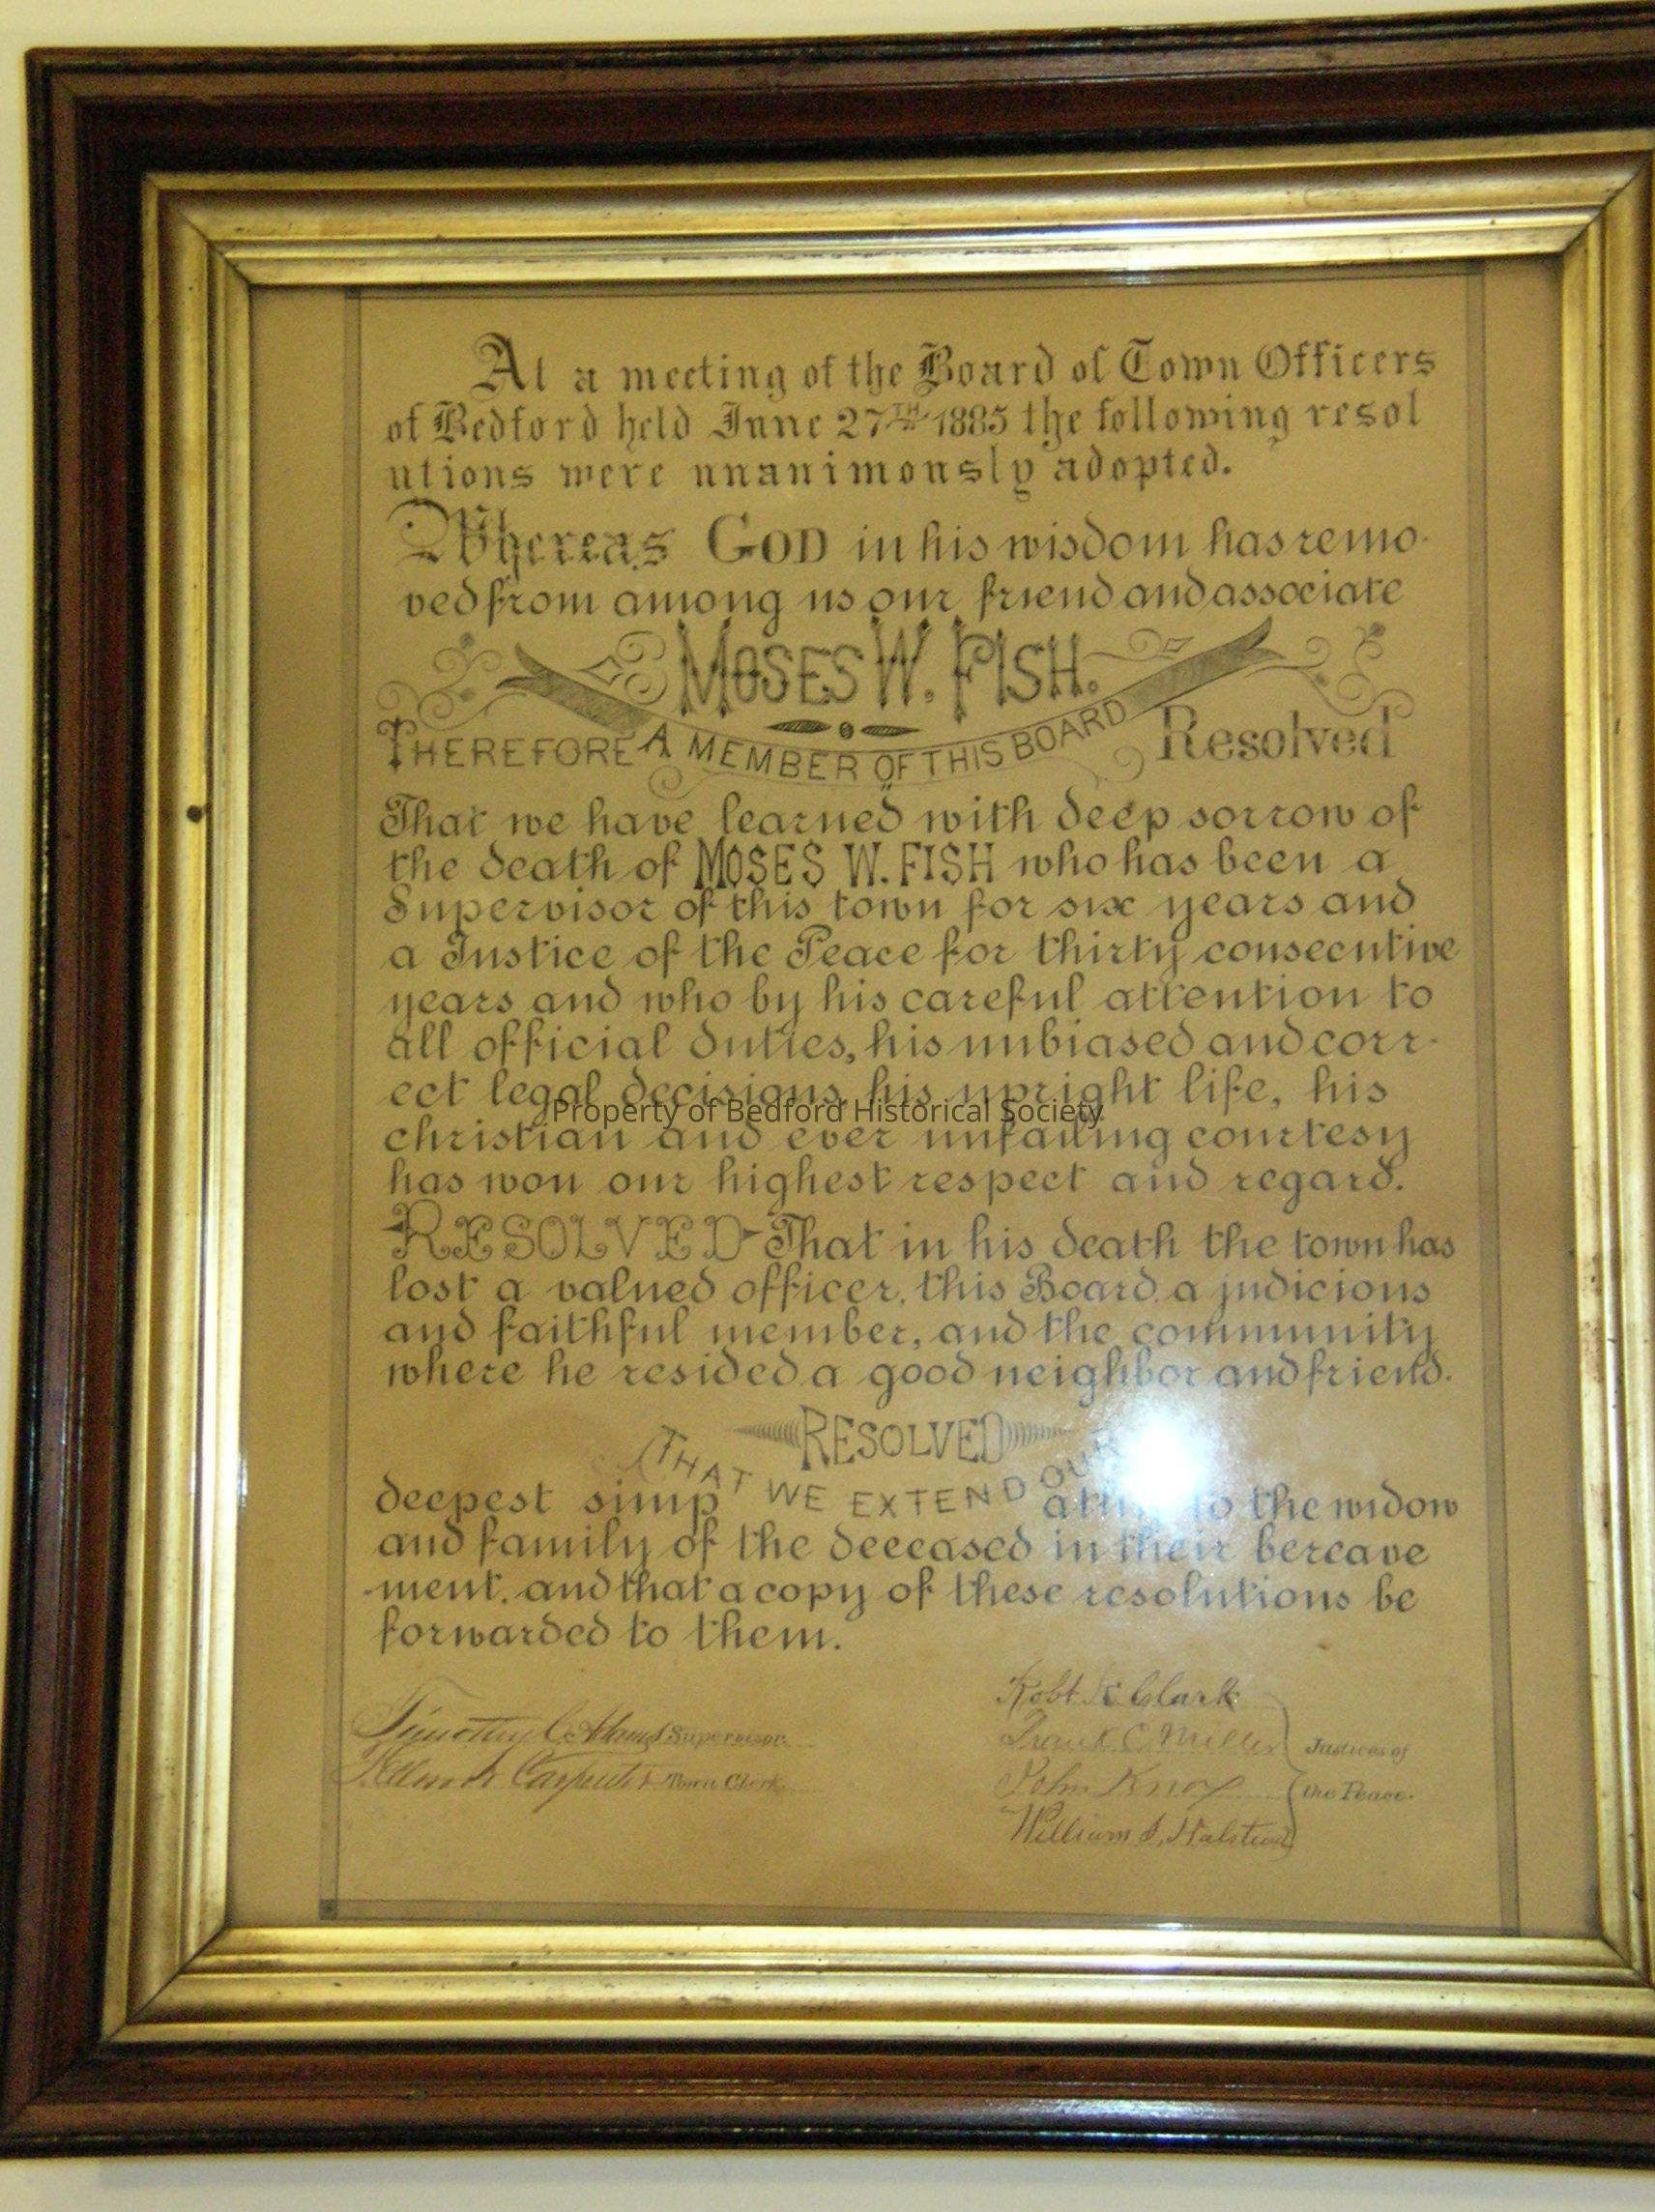 At a meeting of the Board of Town Officers
of Bedford held June 27TH 1885 the following resol
utions were unanimously adopted.
Whereas GOD in his wisdom has remo-
ved from among us our friend and associate
MOSES W. FISH.
A MEMBER OF THIS BOARD
THEREFORE Resolved
That we have learned with deep sorrow of
the death of MOSES W. FISH who has been a
Supervisor of this town for six years and
a Justice of the Peace for thirty consecutive
years and who by his careful attention to
all official duties, his unbiased and corr-
ect legal decisions, his upright life, his
Property of Bedford Historical Society
christian and ever unfailing courtesy
has won our highest respect and regard.
RESOLVED That in his death the town has
lost a valued officer, this Board a judicious
and faithful member, and the community
where he resided a good neighbor and friend.
RESOLVED
THAT WE EXTEND OUR
deepest simp to the widow
and family of the deceased in their bereave
-ment, and that a copy of these resolutions be
forwarded to them.
Timothy C. Adams Supervisor.
Carpenter Town Clerk.
Robt Clark
Frank C. Miller
John Knox
William J. Halstead
Justices of
the Peace.